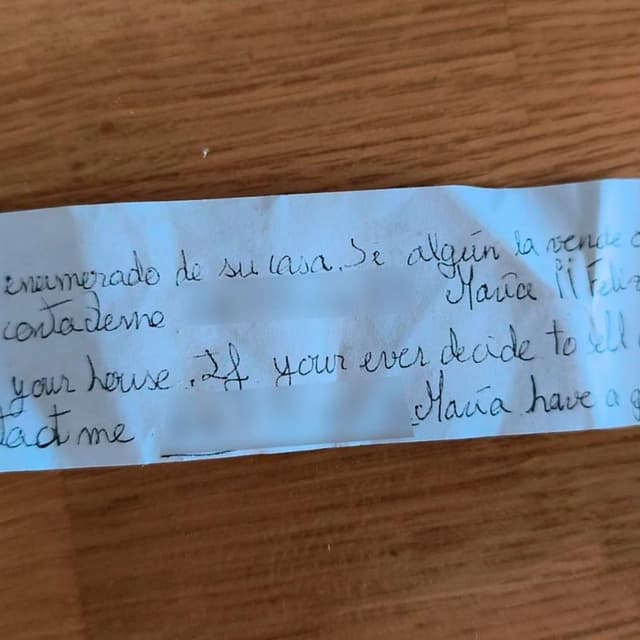 enamorado de su casa. Si algún la vende
contademe María ¡¡ Feliz
your house. If your ever decide to sell
tact me María have a